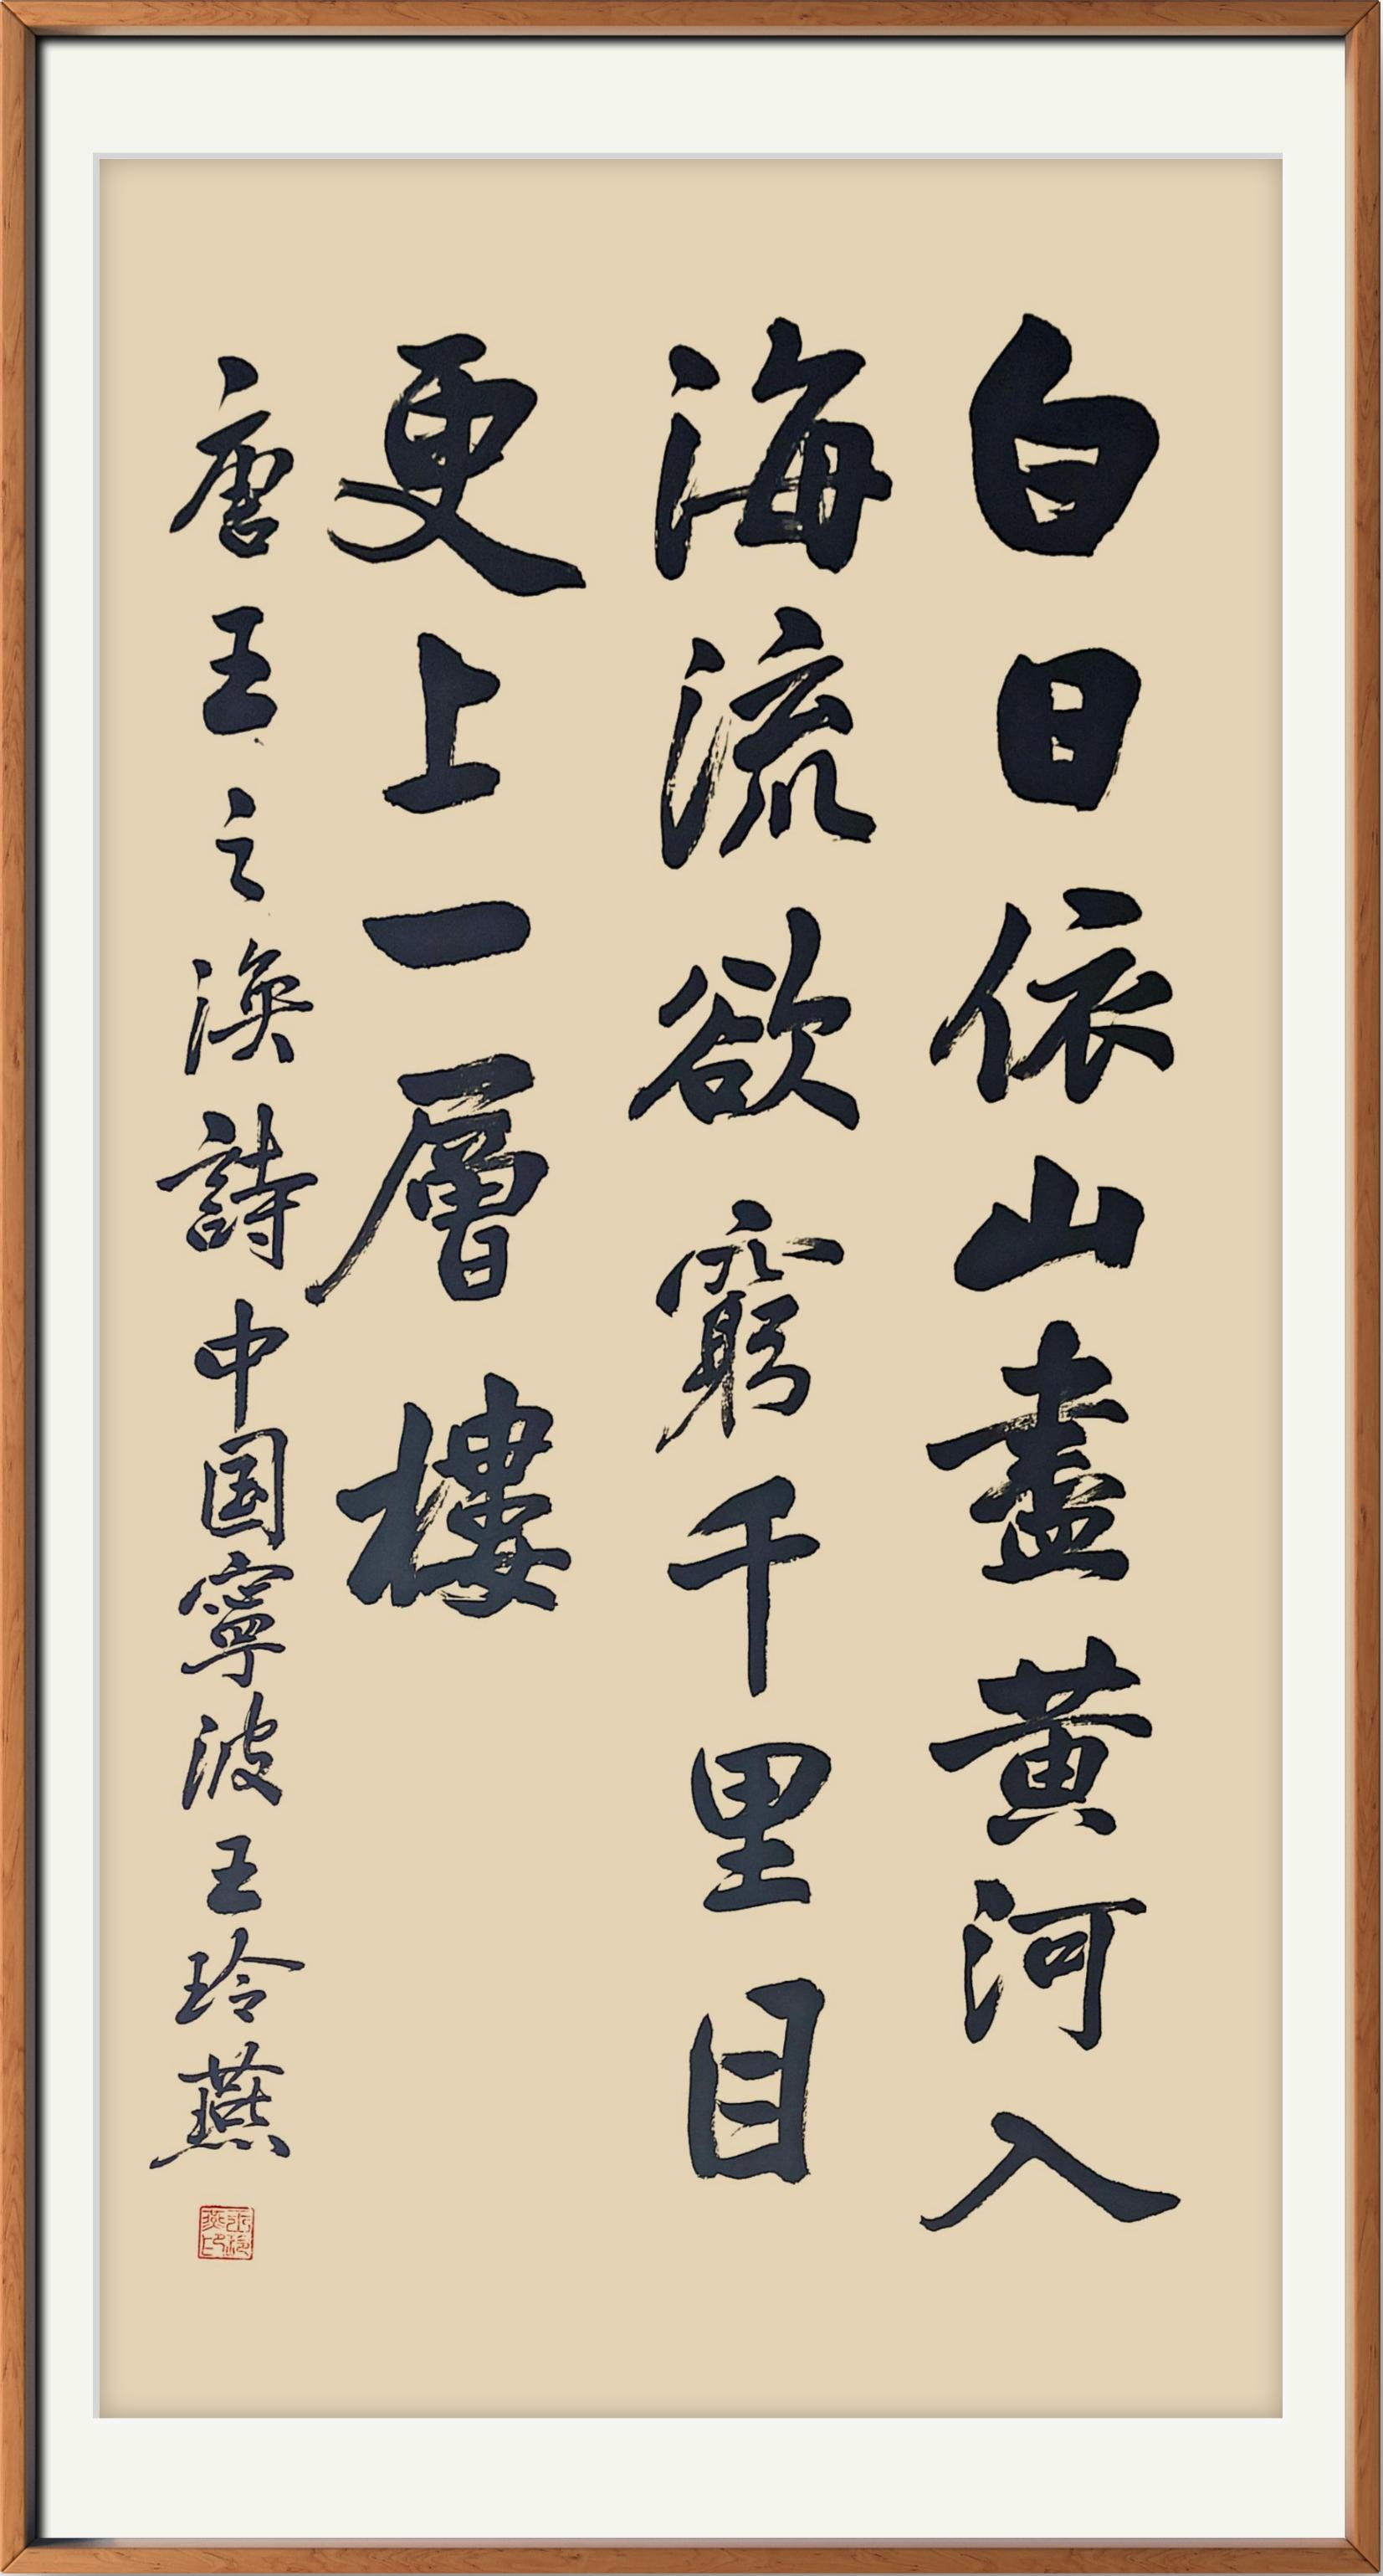 白日依山盡黄河入
海流欲窮千里目
更上一層樓
唐王之渙詩中国寧波王玲燕